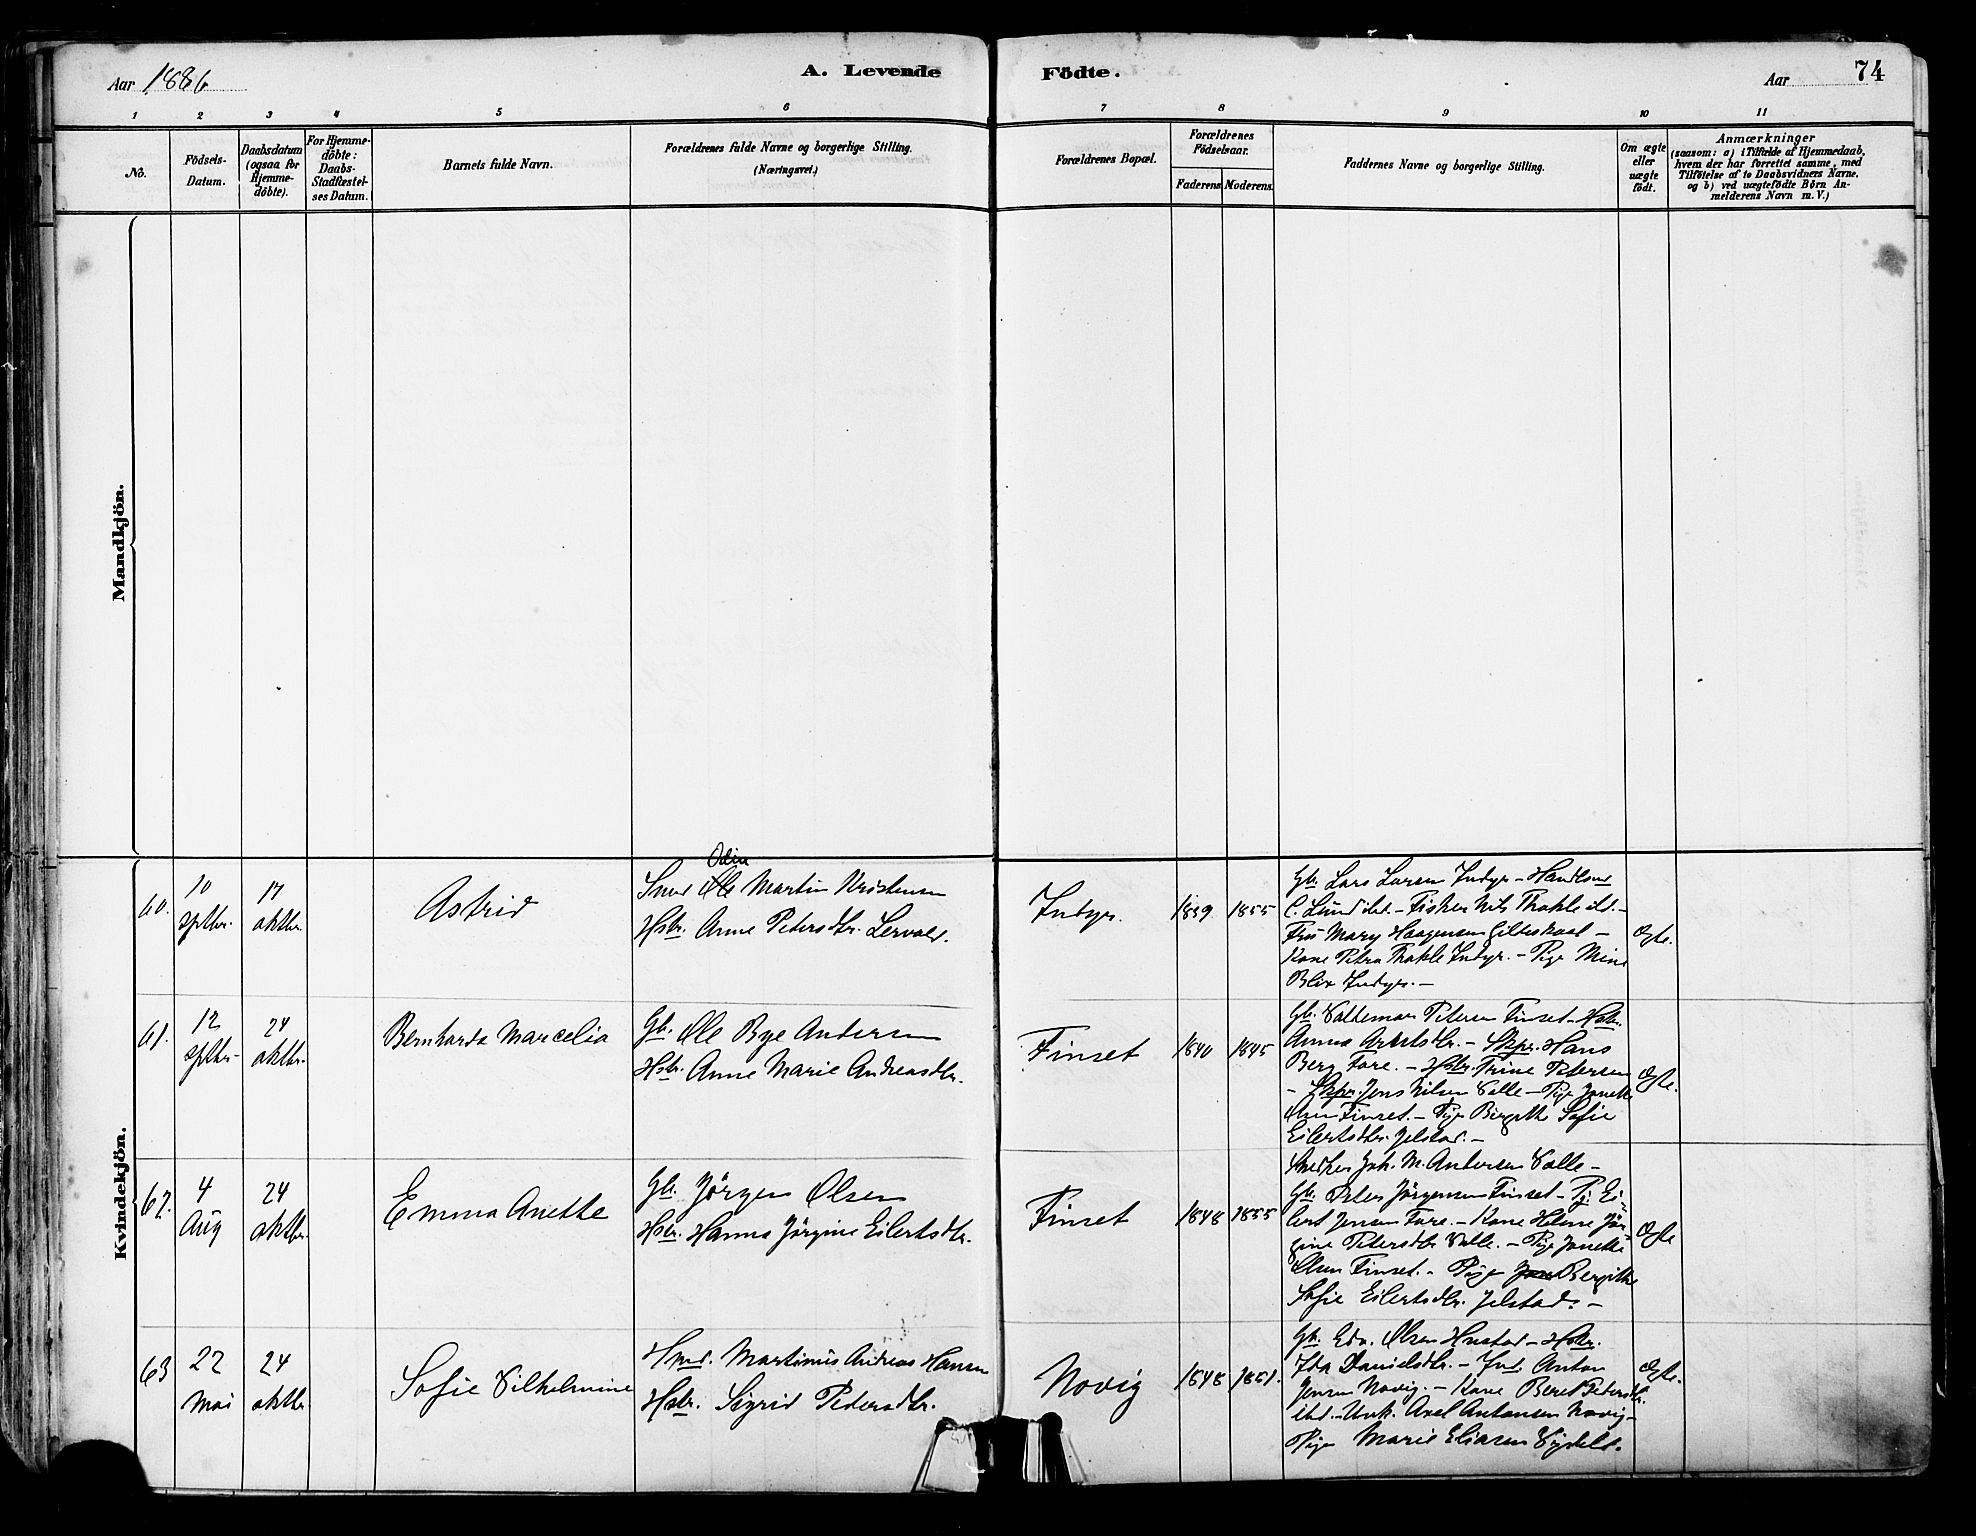 Aar 1886
A. Levende
Födte.
Aar
74
1 2 3 4 5 6 7 8 9 10 11
No.
Födsels-
Datum.
Daabsdatum
(ogsaa for
Hjemme-
döbte).
For Hjemme-
döbte:
Daabs-
Stadfæstel-
ses Datum.
Barnets fulde Navn.
Forældrenes fulde Navne og borgerlige Stilling.
(Næringsvei.)
Forældrenes Bopæl.
Forældrenes
Födselsaar.
Faderens
Moderens.
Faddernes Navne og borgerlige Stilling.
Om ægte
eller
uægte
födt.
Anmærkninger
(saasom: a) i Tilfælde af Hjemmedaab,
hvem der har forrettet samme, med
Tilföielse af to Daabsvidners Navne,
og b) ved uægtefödte Börn An-
melderens Navn m. V.)
Mandkjön.
Kvindekjön.
60.
10
sptbr.
17
oktbr.
Astrid
Odin
Smed Ole Martin Kristensen
Hstr. Anne Petersdtr. Lervold.
Indyr.
1859
1855
Gb. Lars Larsen Indyr - Handlsmd
C. Lund ibd. - Fisker Nils Thakle ibd. -
Frü Mary Haagensen Gildeskaal -
Kone Petra Thakle Indyr. - Pige Mine
Blix Indyr. -
Ægte.
61.
12
sptbr.
24
oktbr.
Bernharda Marcelia
Gb. Ole Bye Andersen
Hstr. Anne Marie Andreasdtr.
Finset
1840
1845
Gb. Valdemar Petersen Finset - Hstr.
Anna Arntsdtr. - Skpr. Hans
Berg Fore. - Hstr. Trine Petersen
- Skpr. Jens Nilsen Valle - Pige Janette
Olsen Finset. - Pige Birgithe Sofie
Eilertsdtr. Jelstad. -
Ægte.
62.
4
Aug
24
oktbr.
Emma Anette
Gb. Jörgen Olsen
Hstr. Hanna Jörgine Eilertsdtr.
Finset
1848
1855
Snedker Joh. M. Andersen Valle -
Gb. Peter Jörgensen Finset - Pg. Ei-
lert Jensen Fore. - Kone Helene Jör-
gine Petersdtr Valle. - Pige Janette
Olsen Finset. - Pige Bergithe
Sofie Eilertsdtr. Jelstad. -
Ægte
63
22
Mai
24
oktbr.
Sofie Vilhelmine
Hmd. Martinus Andreas Hansen
Hstr. Sigrid Pedersdtr.
Novig
1848
1851.
Gb. Edv. Olsen Hustad - Hstr.
Ida Danielsdtr. - Ind. Anton
Jensen Novig. - Kone Beret Petersdtr.
ibd. - Unk. Axel Antonsen Novig -
Pige Marie Eliasen
Ægte.